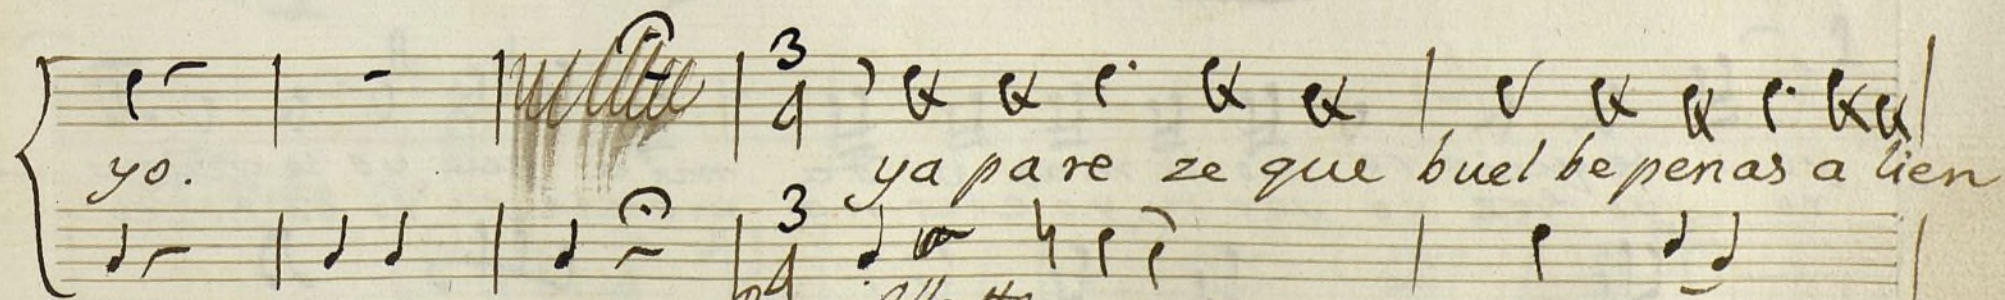 3
4
yo. ya pa re ze que buel be penas a lien
3
4